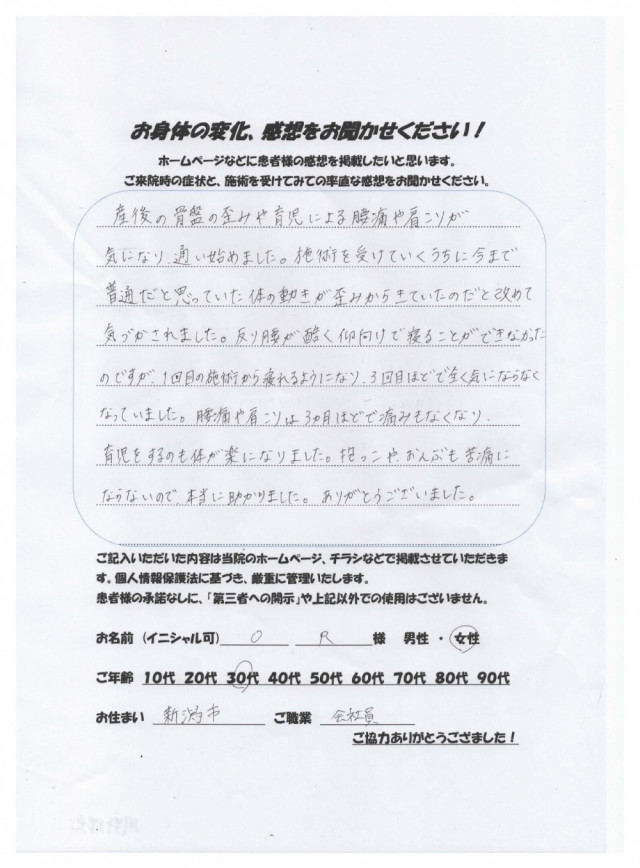 お身体の変化、感想をお聞かせください！
ホームページなどに患者様の感想を掲載したいと思います。
ご来院時の症状と、施術を受けてみての率直な感想をお聞かせください。
産後の骨盤の歪みや育児による腰痛や肩こりが
気になり、通い始めました。施術を受けていくうちに今まで
普通だと思っていた体の動きが歪みからきていたのだと改めて
気づかされました。反り腰が酷く仰向けで寝ることができなかった
のですが、1回目の施術から寝れるようになり、3回目ほどで全く気にならなく
なっていました。腰痛や肩こりは3ヵ月ほどで痛みもなくなり、
育児をするのも体が楽になりました。抱っこや、おんぶも苦痛に
ならないので、本当に助かりました。ありがとうございました。
ご記入いただいた内容は当院のホームページ、チラシなどで掲載させていただきま
す。個人情報保護法に基づき、厳重に管理いたします。
患者様の承諾なしに、「第三者への開示」や上記以外での使用はございません。
お名前（イニシャル可） O R 様 男性 ・ 女性
ご年齢 10代 20代 30代 40代 50代 60代 70代 80代 90代
お住まい 新潟市 ご職業 会社員
ご協力ありがとうござました！